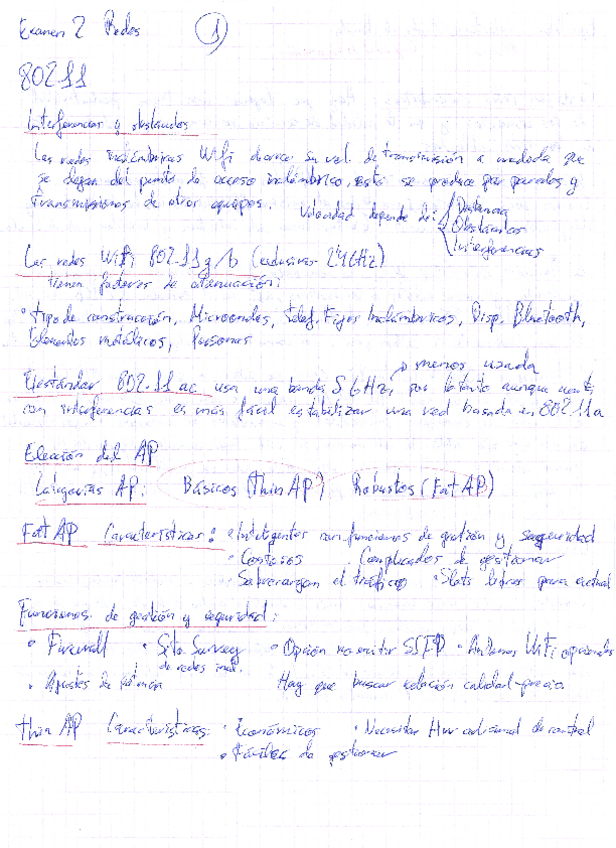 Examen 2 Redes 1
802.11
Interferencias y obstáculos
Las redes inalámbricas Wifi de transmisión a medida que
se alejan del punto de acceso inalámbrico, esto se produce por paredes y
transmisiones de otros equipos. Velocidad depende de: Distancia
Obstáculos
Interferencias
Las redes WiFi 802.11g/b (exclusivas 2'4GHz)
tienen factores de atenuación:
• tipo de construcción, Microondas, Telef. Fijos Inalámbricos, Disp. Bluetooth,
Elementos metálicos, Personas
→ menos usada
El estándar 802.11ac usa una banda 5GHz, por lo tanto aunque
con interferencias es más fácil estabilizar una red basada en 802.11a
Elección del AP
Categorías AP: Básicos (Thin AP) Robustos (Fat AP)
Fat AP Características: • Inteligentes con funciones de gestión y seguridad
• Costosos • Complicados de gestionar
• Sobrecargan el tráfico • Slots libres para
Funciones de gestión y seguridad:
• Firewall • Site Survey • Opción no emitir SSID • Antenas WiFi opcionales
de redes inal.
• Ajustes de potencia Hay que buscar relación calidad-precio
Thin AP Características: • Económicos • Necesitan Hw adicional de control
• Fáciles de gestionar